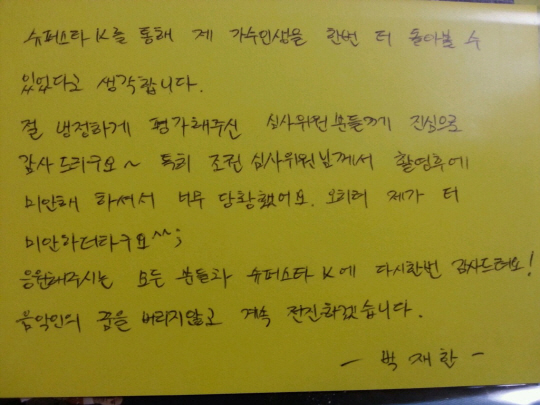 슈퍼스타 K를 통해 제 가수인생을 한번 더 돌아볼 수
있었다고 생각합니다.
절 냉정하게 평가해주신 심사위원분들께 진심으로
감사드리구요~ 특히 조권 심사위원님께서 촬영후에
미안해 하셔서 너무 당황했어요. 오히려 제가 더
미안하더라구요^^;
응원해주시는 모든 분들과 슈퍼스타 K에 다시한번 감사드려요!
음악인의 꿈을 버리지않고 계속 전진하겠습니다.
- 박재한 -